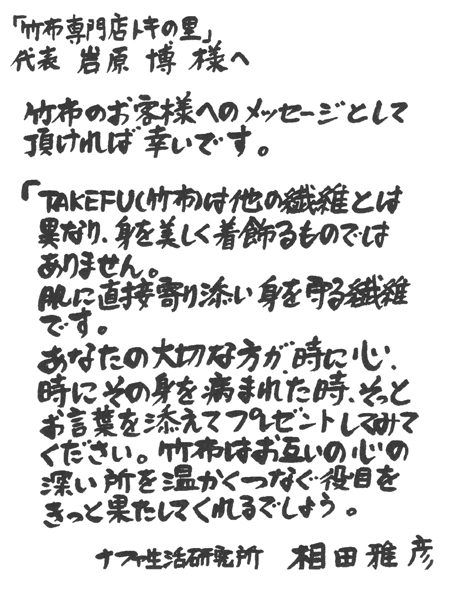 「竹布専門店トキの里」
代表 岩原 博 様へ
竹布のお客様へのメッセージとして
頂ければ幸いです。
「TAKEFU(竹布)は他の繊維とは
異なり、身を美しく着飾るものでは
ありません。
肌に直接寄り添い身を守る繊維
です。
あなたの大切な方が、時に心、
時にその身を病まれた時、そっと
お言葉を添えてプレゼントしてみて
ください。竹布はお互いの心の
深い所を温かくつなぐ役目を
きっと果たしてくれるでしょう。
ナファ生活研究所 相田雅彦